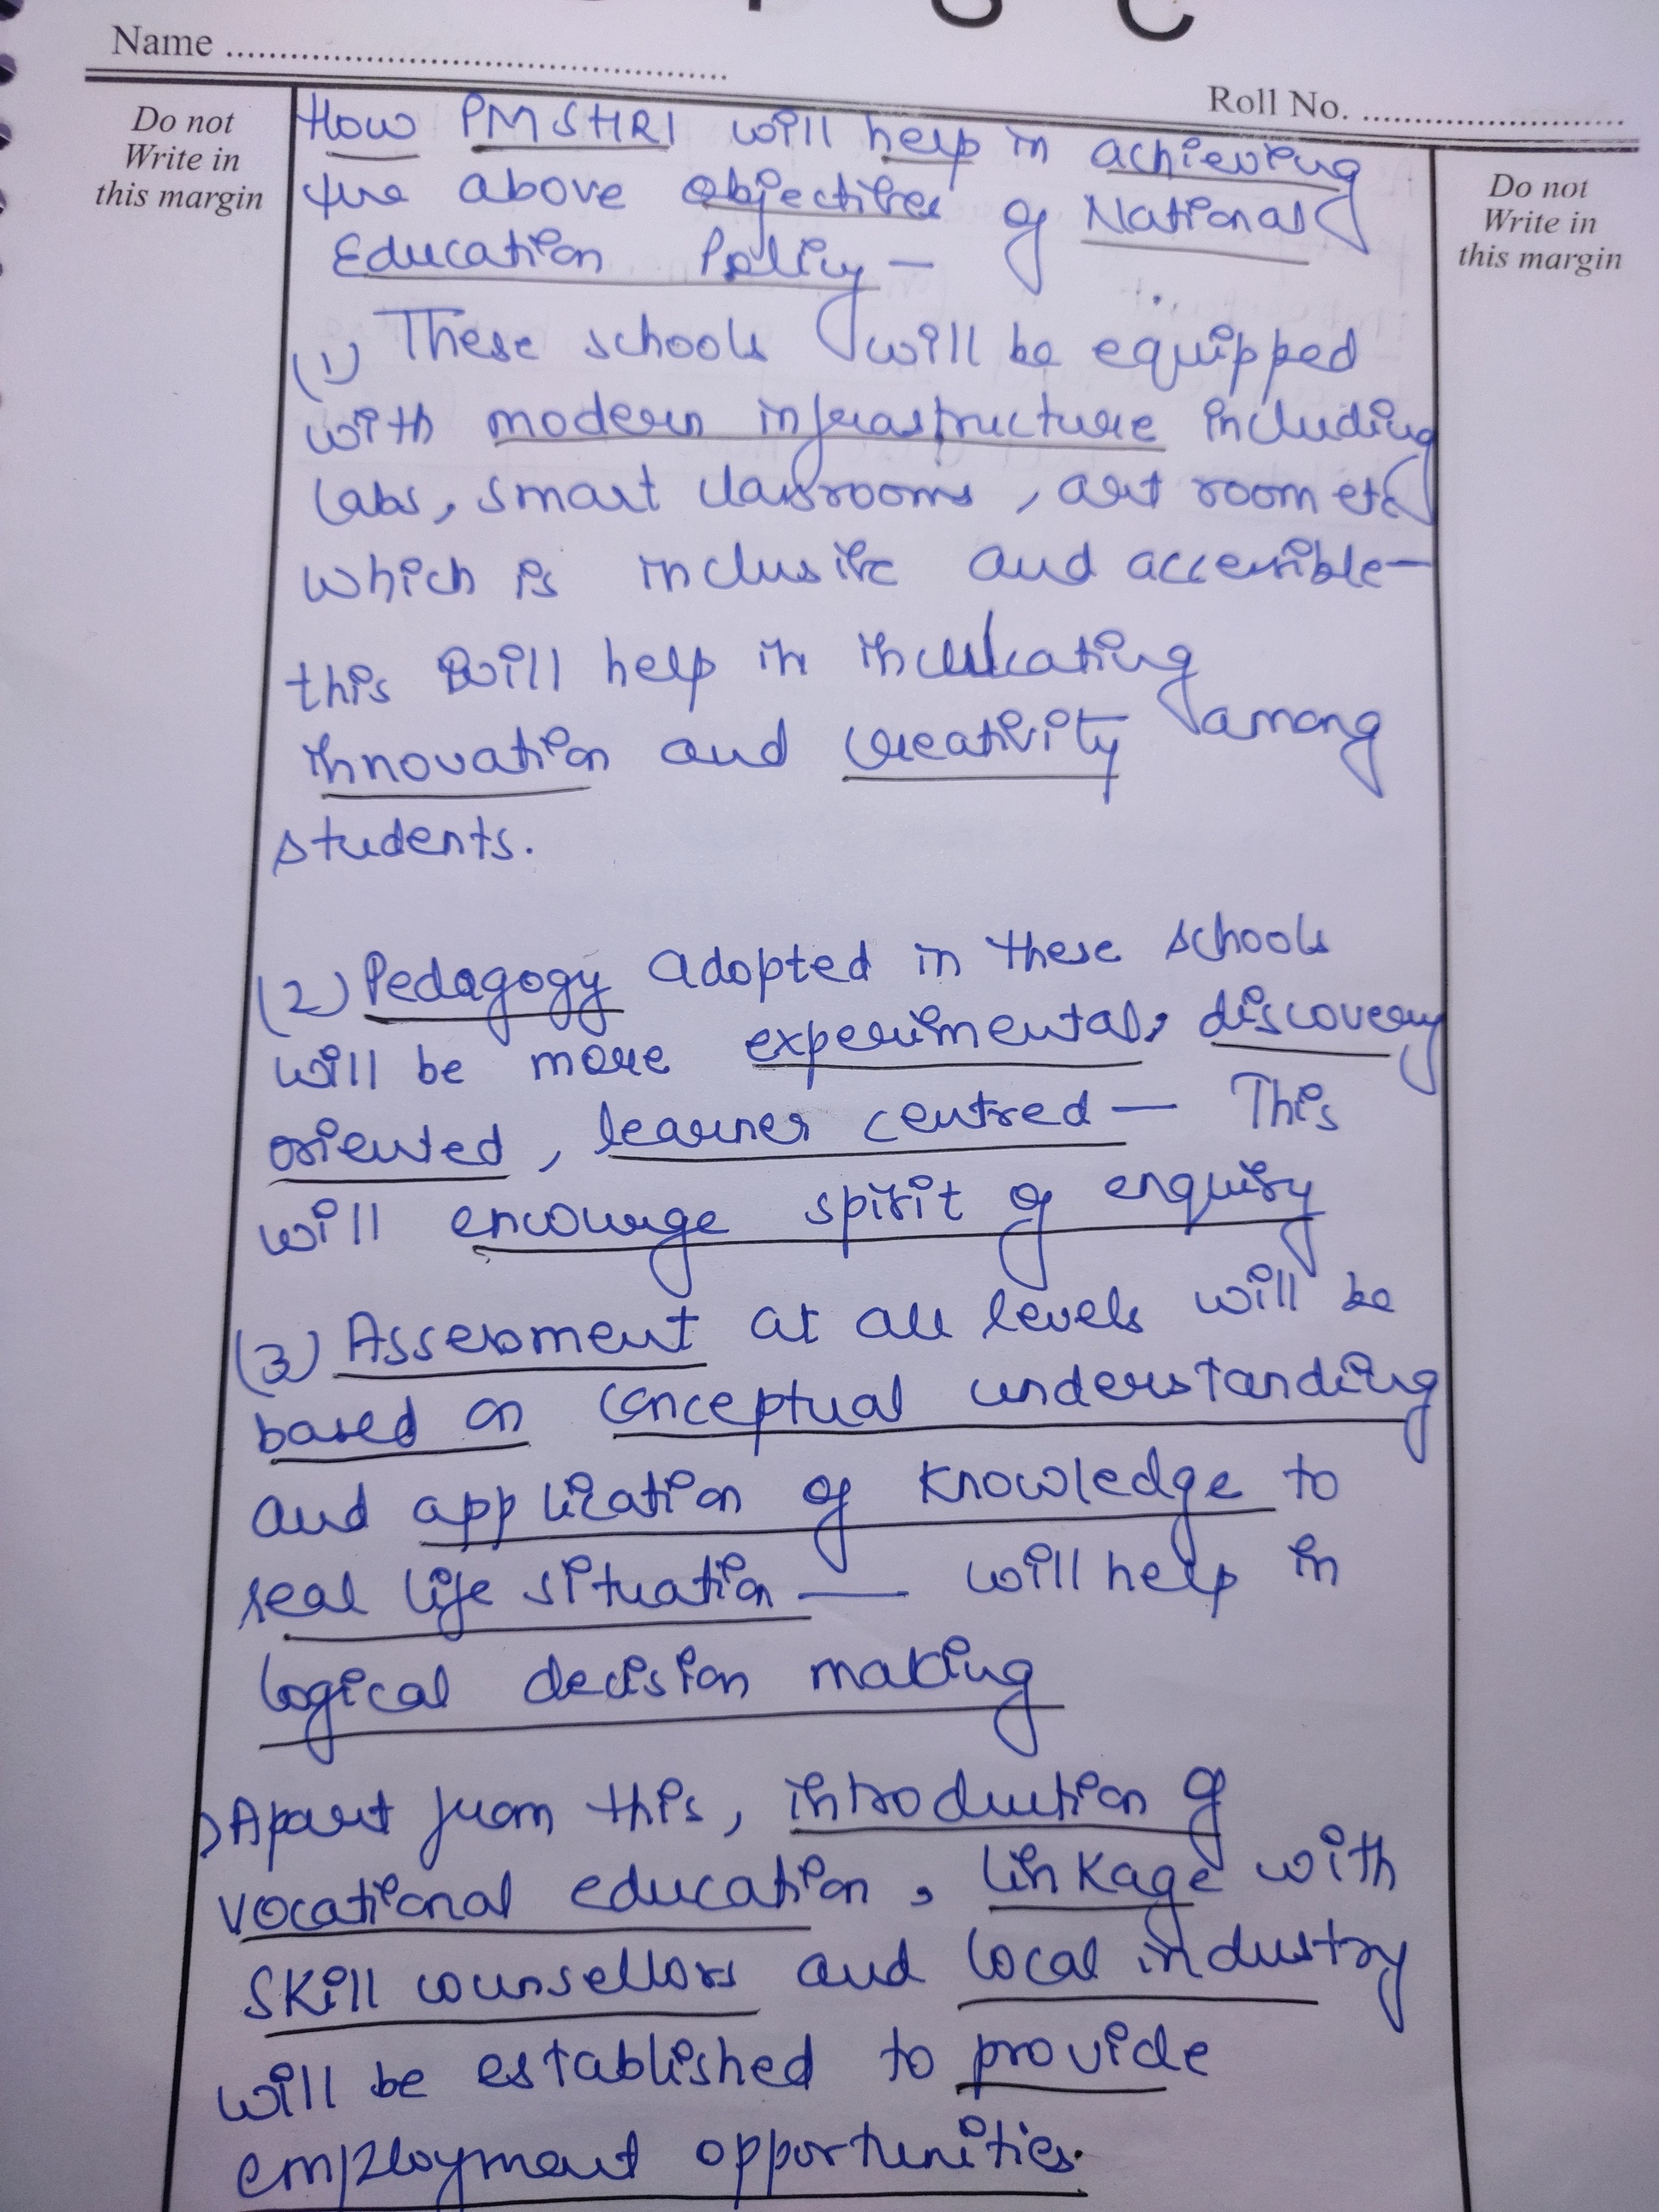 Name
Roll No.
Do not
Write in
this margin
Do not
Write in
this margin
How PMSHRI will help in achieving
the above objectives of National
Education Policy —
(1) These schools will be equipped
with modern infrastructure including
labs, smart classrooms, art room etc
which is inclusive and accessible —
this will help in inculcating
innovation and creativity among
students.
(2) Pedagogy adopted in these schools
will be more experimental, discovery
oriented, learner centred — This
will encourage spirit of enquiry
(3) Assessment at all levels will be
based on conceptual understanding
and application of knowledge to
real life situation — will help in
logical decision making
Apart from this, introduction of
vocational education, linkage with
skill counsellors and local industry
will be established to provide
employment opportunities.